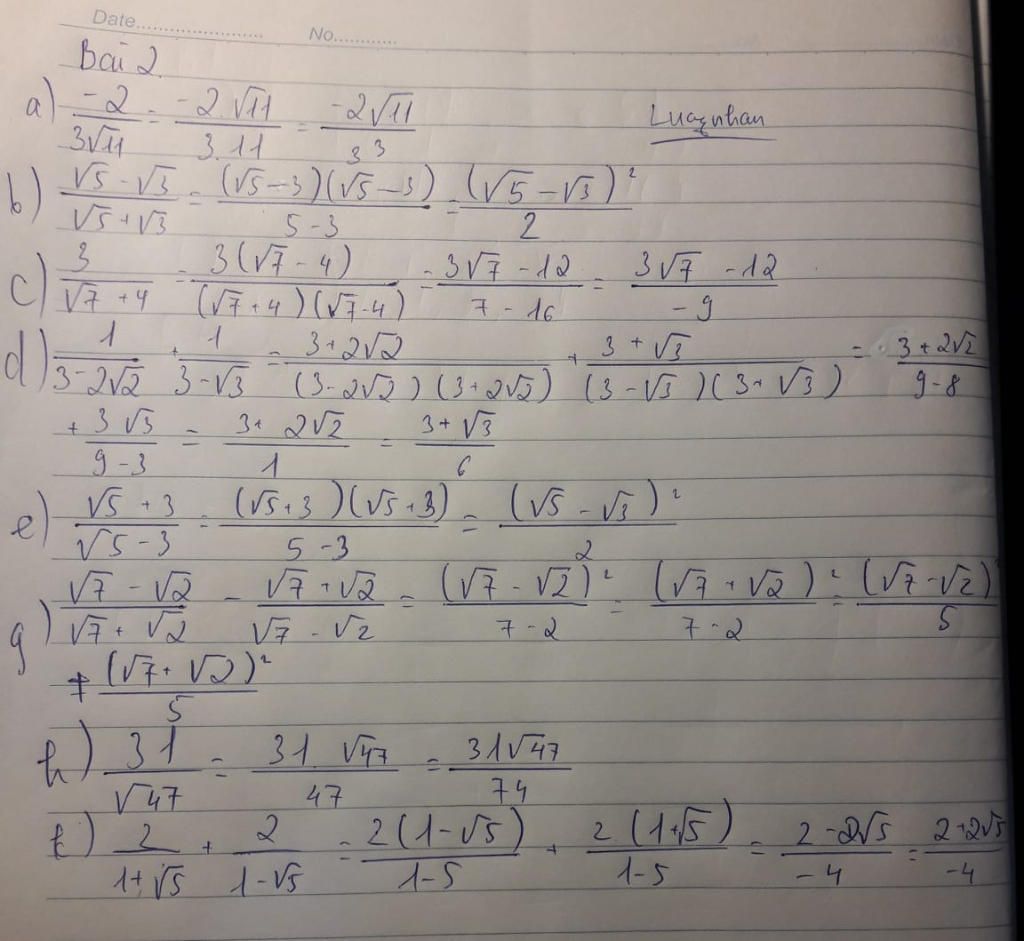 Date........................ No............
Bài 2
a) -2/(3√11) = (-2.√11)/(3.11) = (-2√11)/33
b) (√5 - √3)/(√5 + √3) = ((√5 - 3)(√5 - 3))/(5 - 3) = (√5 - √3)²/2
c) 3/(√7 + 4) = (3(√7 - 4))/((√7 + 4)(√7 - 4)) = (3√7 - 12)/(7 - 16) = (3√7 - 12)/(-9)
d) 1/(3 - 2√2) + 1/(3 - √3) = (3 + 2√2)/((3 - 2√2)(3 + 2√2)) + (3 + √3)/((3 - √3)(3 + √3)) = (3 + 2√2)/(9 - 8)
+ (3 √3)/(9 - 3) = (3 + 2√2)/1 = (3 + √3)/6
e) (√5 + 3)/(√5 - 3) = ((√5 + 3)(√5 + 3))/(5 - 3) = (√5 - √3)²/2
g) (√7 - √2)/(√7 + √2) - (√7 + √2)/(√7 - √2) = (√7 - √2)²/(7 - 2) - (√7 + √2)²/(7 - 2) = (√7 - √2)²/5
+ (√7 + √2)²/5
h) 31/√47 = (31.√47)/47 = (31√47)/74
t) 2/(1 + √5) + 2/(1 - √5) = (2(1 - √5))/(1 - 5) + (2(1 + √5))/(1 - 5) = (2 - 2√5)/(-4) = (2 + 2√5)/(-4)